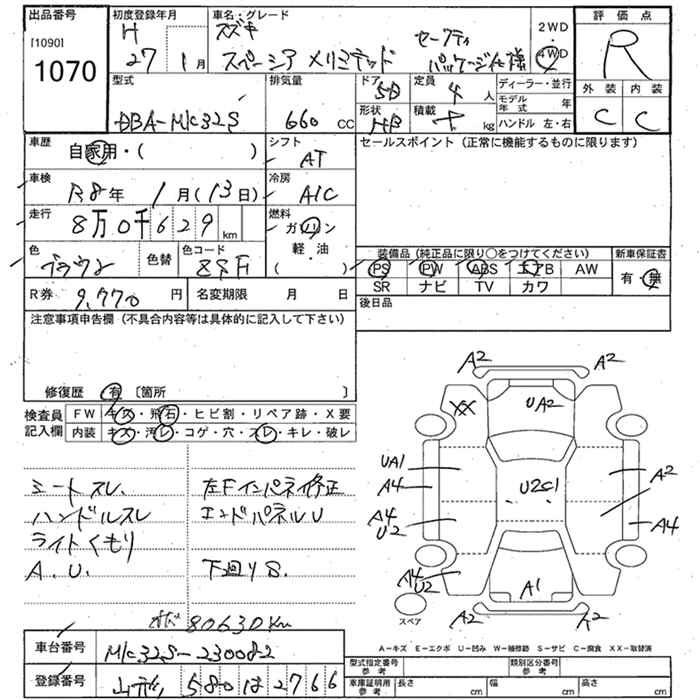 出品番号
[1090]
1070
初度登録年月
H
27年1月
車名・グレード
スズキ
スペーシア メリミテッド セーフティ パッケージ仕様
2WD
・
4WD
評価点
R
外装 内装
C C
型式
DBA-MK32S
排気量
660 CC
ドア 5D
形状 HB
定員 4人
積載 kg
ディーラー・並行
モデル年式 年
ハンドル 左・右
車歴
自家用・( )
シフト
AT
セールスポイント (正常に機能するものに限ります)
車検
R8年 1月(13日)
冷房
A/C
走行
8万0千629km
燃料
ガソリン
軽・油
( )
色
ブラウン
色替
色コード
ZSF
装備品 (純正品に限り○をつけてください) 新車保証書
PS PW ABS エアB AW 有・無
SR ナビ TV カワ
R券
9,770円
名変期限 月 日
後日品
注意事項申告欄 (不具合内容等は具体的に記入して下さい)
修復歴 有 〔箇所 〕
検査員記入欄
FW キズ・飛石・ヒビ割・リペア跡・X要
内装 キズ・汚レ・コゲ・穴・スレ・キレ・破レ
シートスレ、
ハンドルスレ
ライトくもり
A.U.
左Fインパネ修正
エンドパネルU
下廻りS.
80630Km
A2
A2
XX
UA2
UA1
A4
U2C1
A2
A4
U2
A4
A4
U2
A1
A2
A2
スペア
A-キズ E-エクボ U-凹み W-補修跡 S-サビ C-腐食 XX-取替済
車台番号
MK32S-230082
型式指定番号 参考
類別区分番号 参考
登録番号
580 は 2766
車庫証明用 参考
長さ cm
幅 cm
高さ cm